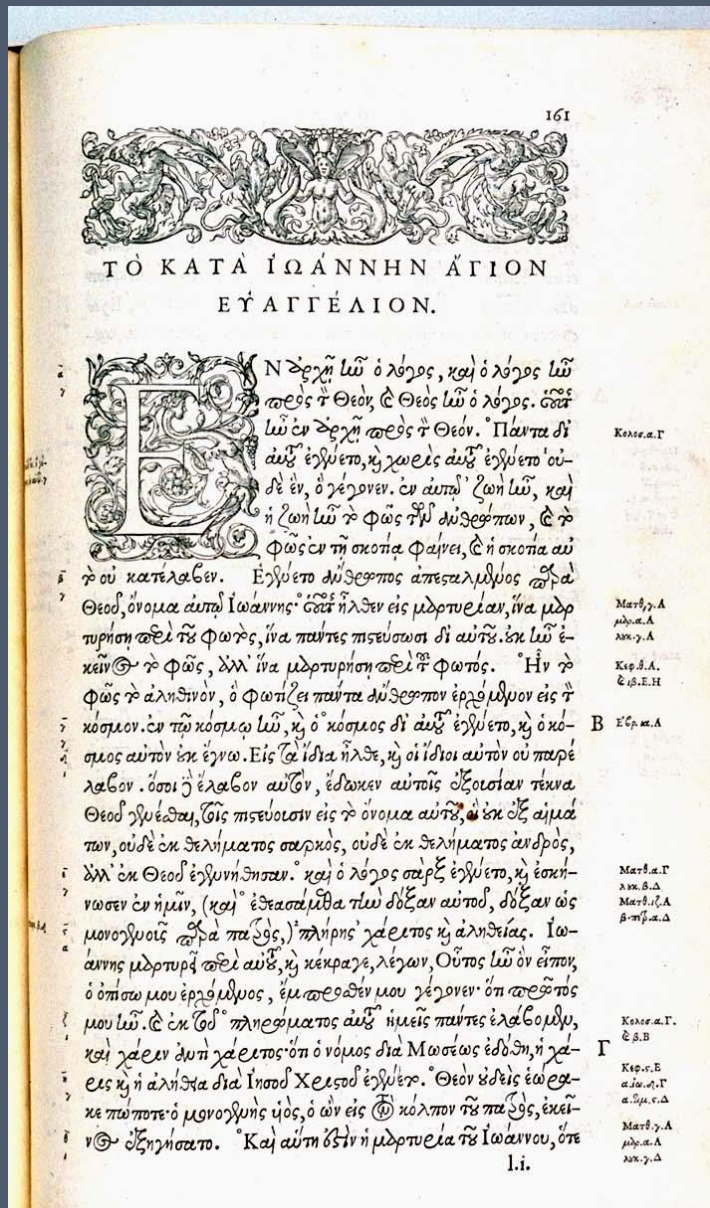 161
ΤῸ ΚΑΤᾺ ἸΩΆΝΝΗΝ ἍΓΙΟΝ
ΕΥ̓ΑΓΓΈΛΙΟΝ.
ΕΝ ἀρχῇ ἦν ὁ λόγος, καὶ ὁ λόγος ἦν
πρὸς τὸν Θεόν, καὶ Θεὸς ἦν ὁ λόγος. οὗτος
ἦν ἐν ἀρχῇ πρὸς τὸν Θεόν. Πάντα δι
αὐτοῦ ἐγένετο, καὶ χωρὶς αὐτοῦ ἐγένετο οὐ-
δὲ ἕν, ὃ γέγονεν. ἐν αὐτῷ ζωὴ ἦν, καὶ
ἡ ζωὴ ἦν τὸ φῶς τῶν ἀνθρώπων, καὶ τὸ
φῶς ἐν τῇ σκοτίᾳ φαίνει, καὶ ἡ σκοτία αὐ
τὸ οὐ κατέλαβεν. Ἐγένετο ἄνθρωπος ἀπεσταλμένος παρὰ
Θεοῦ, ὄνομα αὐτῷ Ἰωάννης· οὗτος ἦλθεν εἰς μαρτυρίαν, ἵνα μαρ
τυρήσῃ περὶ τοῦ φωτὸς, ἵνα πάντες πιστεύσωσι δι αὐτοῦ. οὐκ ἦν ἐ-
κεῖνος τὸ φῶς, ἀλλ' ἵνα μαρτυρήσῃ περὶ τοῦ φωτός. Ἦν τὸ
φῶς τὸ ἀληθινὸν, ὃ φωτίζει πάντα ἄνθρωπον ἐρχόμενον εἰς τὸν
κόσμον. ἐν τῷ κόσμῳ ἦν, καὶ ὁ κόσμος δι αὐτοῦ ἐγένετο, καὶ ὁ κό-
σμος αὐτὸν οὐκ ἔγνω. Εἰς τὰ ἴδια ἦλθε, καὶ οἱ ἴδιοι αὐτὸν οὐ παρέ
λαβον. ὅσοι δὲ ἔλαβον αὐτὸν, ἔδωκεν αὐτοῖς ἐξουσίαν τέκνα
Θεοῦ γενέσθαι, τοῖς πιστεύουσιν εἰς τὸ ὄνομα αὐτοῦ, οἳ οὐκ ἐξ αἱμά
των, οὐδὲ ἐκ θελήματος σαρκὸς, οὐδὲ ἐκ θελήματος ἀνδρὸς,
ἀλλ' ἐκ Θεοῦ ἐγεννήθησαν. καὶ ὁ λόγος σὰρξ ἐγένετο, καὶ ἐσκή-
νωσεν ἐν ἡμῖν, (καὶ ἐθεασάμεθα τὴν δόξαν αὐτοῦ, δόξαν ὡς
μονογενοῦς παρὰ πατρὸς,) πλήρης χάριτος καὶ ἀληθείας. Ἰω-
άννης μαρτυρεῖ περὶ αὐτοῦ, καὶ κέκραγε, λέγων, Οὗτος ἦν ὃν εἶπον,
ὁ ὀπίσω μου ἐρχόμενος, ἔμπροσθέν μου γέγονεν· ὅτι πρῶτός
μου ἦν. καὶ ἐκ τοῦ πληρώματος αὐτοῦ ἡμεῖς πάντες ἐλάβομεν,
καὶ χάριν ἀντὶ χάριτος· ὅτι ὁ νόμος διὰ Μωσέως ἐδόθη, ἡ χά-
ρις καὶ ἡ ἀλήθεια διὰ Ἰησοῦ Χριστοῦ ἐγένετο. Θεὸν οὐδεὶς ἑώρα-
κε πώποτε· ὁ μονογενὴς υἱὸς, ὁ ὢν εἰς τὸν κόλπον τοῦ πατρὸς, ἐκεῖ-
νος ἐξηγήσατο. Καὶ αὕτη ἐστὶν ἡ μαρτυρία τοῦ Ἰωάννου, ὅτε
l.i.
Κολοσ.α.Γ
Ματθ.γ.Α
μαρ.α.Α
λουκ.γ.Α
Κεφ.θ.Α.
καὶ ιβ.Ε.Η
Β
Ἑβρ.ια.Α
Ματθ.α.Γ
λουκ.β.Δ
Ματθ.ιζ.Α
β.πέτρ.α.Δ
Κολοσ.α.Γ.
καὶ β.Β
Γ
Κεφ.ς.Ε
α.τιμ.ς.Δ
Ματθ.γ.Α
μαρ.α.Α
λουκ.γ.Δ